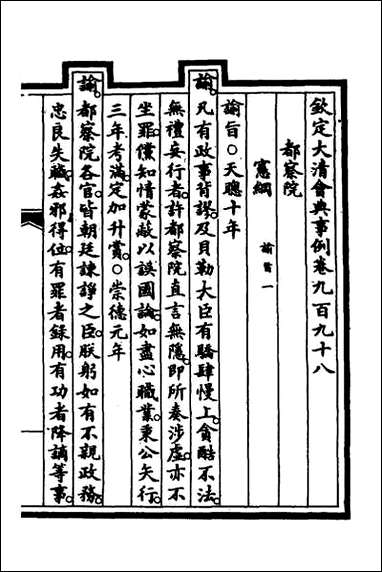 欽定大清會典事例卷九百九十八
都察院
憲綱 諭旨一
諭旨○天聰十年
諭。凡有政事背謬。及貝勒大臣有驕肆慢上。貪酷不法。
無禮妄行者。許都察院直言無隱。即所奏涉虛。亦不
坐罪。儻知情蒙蔽。以誤國論。如盡心職業。秉公矢行。
三年考滿。定加升賞。○崇德元年
諭。都察院各官。皆朝廷諫諍之臣。朕躬如有不親政務。
忠良失職。姦邪得位。有罪者錄用。有功者降謫等事。